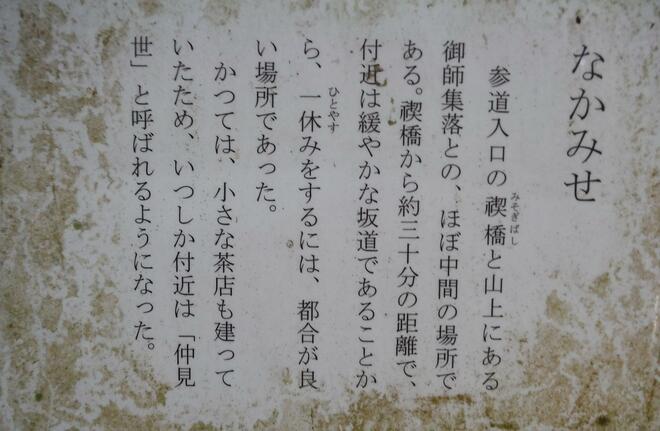 なかみせ
参道入口の禊橋と山上にある
みそぎばし
御師集落との、ほぼ中間の場所で
ある。禊橋から約三十分の距離で、
付近は緩やかな坂道であることか
ら、一休みをするには、都合が良
ひとやす
い場所であった。
かつては、小さな茶店も建って
いたため、いつしか付近は「仲見
世」と呼ばれるようになった。